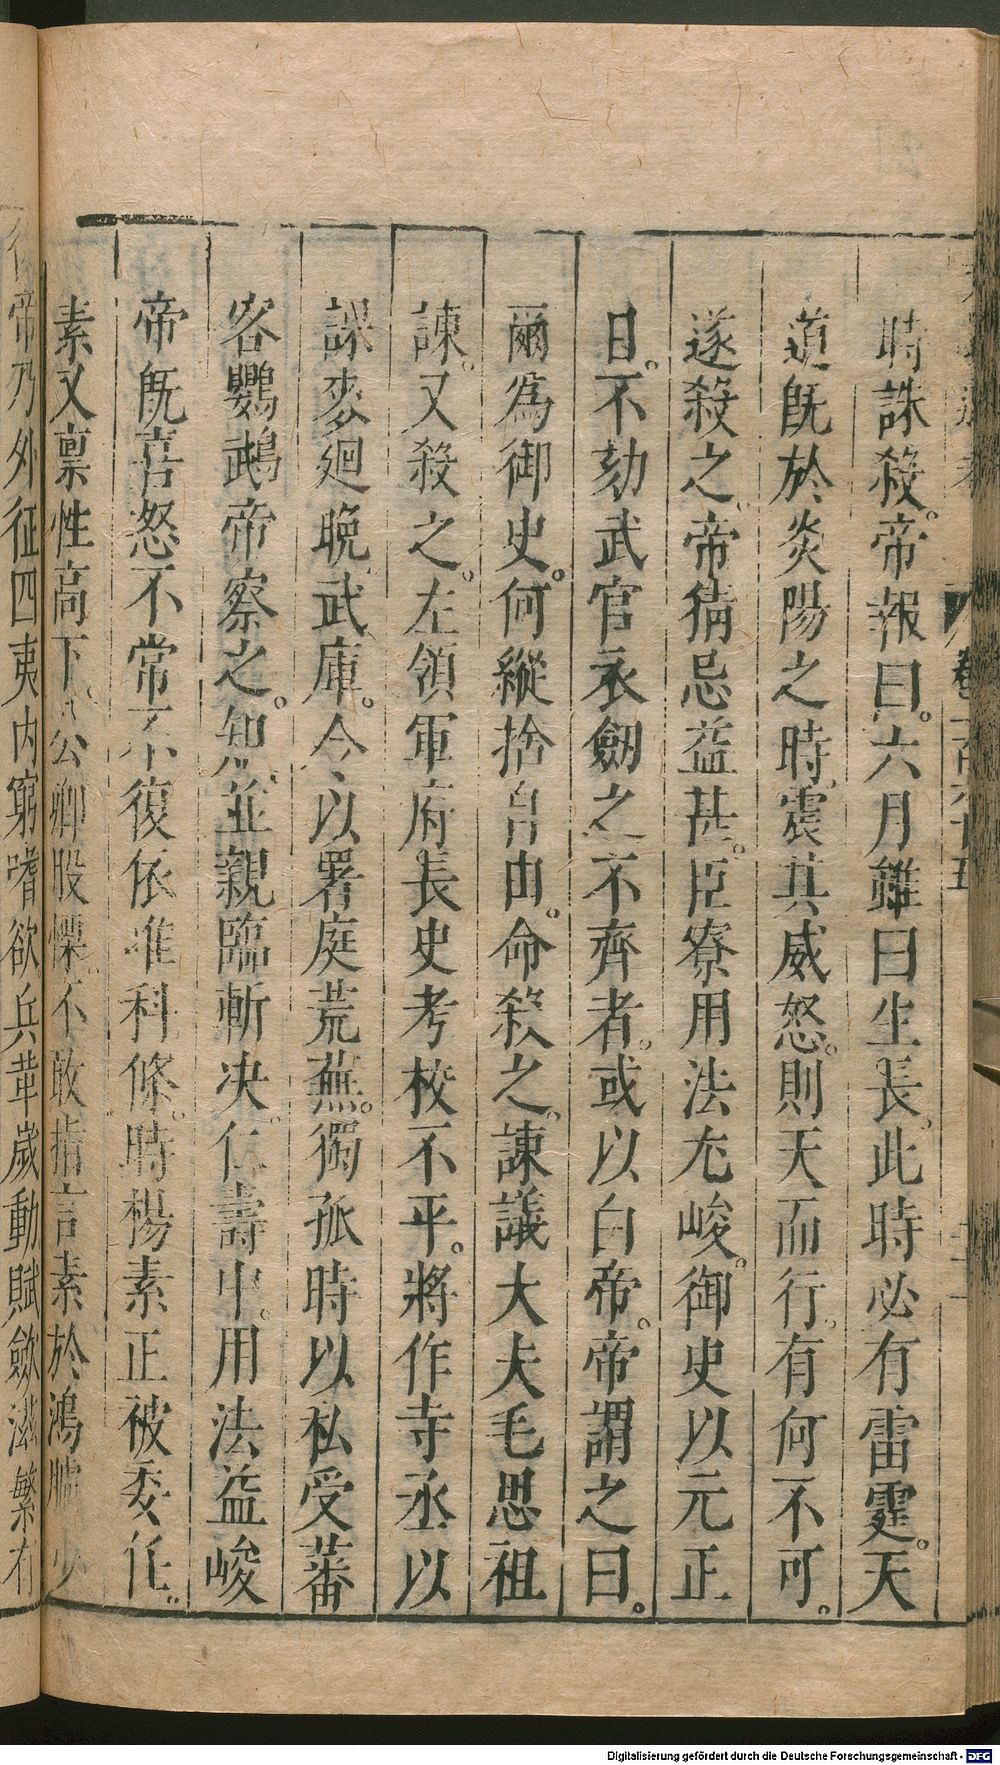 時誅殺。帝報曰。六月雖曰生長。此時必有雷霆。天
道旣於炎陽之時。震其威怒。則天而行。有何不可。
遂殺之。帝猜忌益甚。臣寮用法尤峻。御史以元正
日。不劾武官衣劒之不齊者。或以白帝。帝謂之曰。
爾為御史。何縱捨自由。命殺之。諫議大夫毛思祖
諫。又殺之。左領軍府長史考校不平。將作寺丞以
課麥𢌞晚。武庫。令以署庭荒蕪。獨孤時以私受蕃
客鸚鵡。帝察之。知。並親臨斬决。仁壽中。用法益峻
帝旣喜怒不常。不復依準科條。時楊素正被委任。
素又禀性高下。公卿股慄。不敢措言。素於鴻臚少
帝乃外征四夷。内窮嗜欲。兵革歲動。賦歛滋繁。有
Digitalisierung gefördert durch die Deutsche Forschungsgemeinschaft - DFG